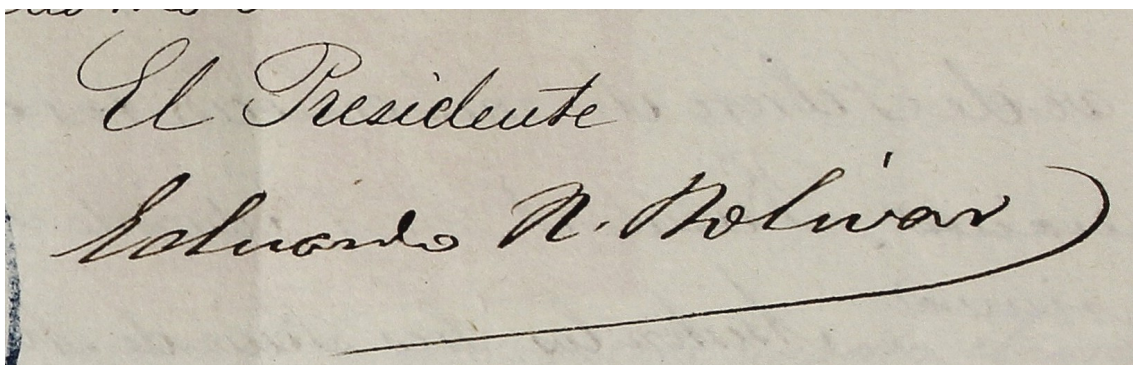 El Presidente
Eduardo N. Bolivar